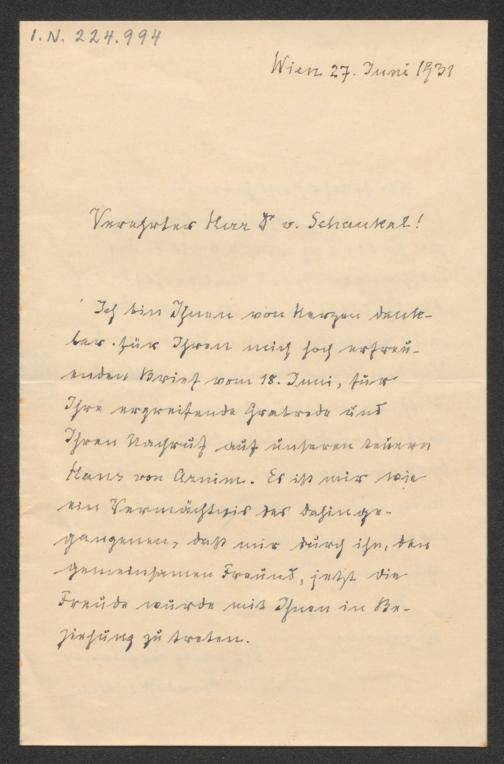 I.N. 224.994
Wien 27. Juni 1931
Verehrter Herr Dr v. Schaukal!
Ich bin Ihnen von Herzen dank-
bar für Ihren mich hoch erfreu-
enden Brief vom 18. Juni, für
Ihre ergreifende Grabrede und
Ihren Nachruf auf unseren teuern
Hans von Arnim. Es ist mir wie
ein Vermächtnis des dahinge-
gangenen, daß mir durch ihn, den
gemeinsamen Freund, jetzt die
Freude wurde mit Ihnen in Be-
ziehung zu treten.